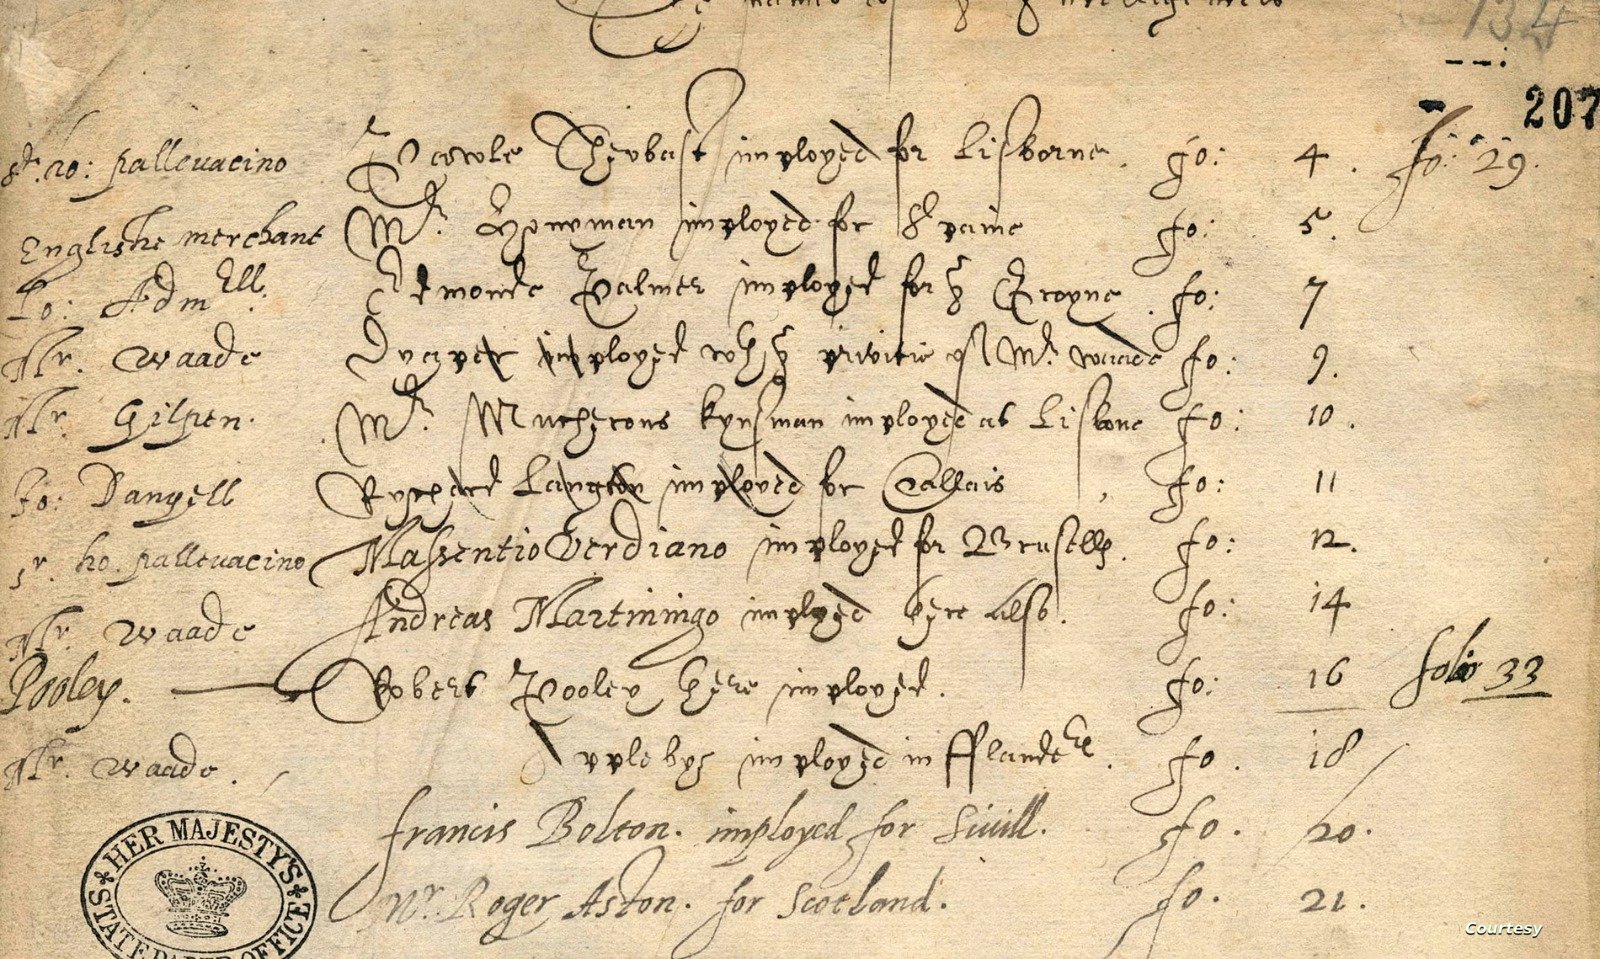 The names of
134
207
Sr. ho: pallevacino Pawle Theobast imployed for Lisborne. fo: 4. fo: 29.
Englishe merchant Mr. Honyman imployed for Spaine fo: 5.
Lo: Admell. Edmonde Palmer imployed for ye Groyne. fo: 7
Mr. Waade Draper imployed wth ye privitie of Mr. Waade fo: 9.
Mr. Gilpen. Mr. Mucherons kynsman imployed at Lisbone fo: 10.
Jo: Danyell Rychard Langton imployed for Callais, fo: 11
Sr. ho. pallevacino Massentio Verdiano imployed for Brusells. fo: 12.
Mr. Waade Andreas Martiningo imployed here also. fo: 14
Pooley. Robert Pooley here imployed. fo: 16 folio 33
Mr. Waade. Applebye imployed in Fflanders. fo. 18
francis Bolton. imployed for Sivill. fo. 20.
Mr. Roger Aston. for Scotland. fo. 21.
HER MAJESTY'S STATE PAPER OFFICE
Courtesy